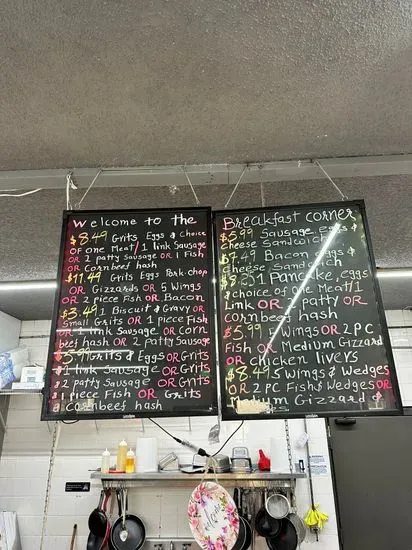 Welcome to the
$8.49 Grits Eggs & Choice
OF one Meat/1 link Sausage
OR 2 patty Sausage OR 1 Fish
OR Cornbeef hash
$11.49 Grits Eggs Pork-chop
OR Gizzards OR 5 Wings
OR 2 piece Fish OR Bacon
$3.49 1 Biscuit & Gravy OR
Small Grits OR 1 piece Fish
OR 1 link Sausage OR Corn
beef hash OR 2 patty Sausage
$5.99 Grits & Eggs OR Grits
& 1 link Sausage OR Grits
& 2 patty Sausage OR Grits
& 1 piece Fish OR Grits
& Cornbeef hash
Breakfast corner
$5.99 Sausage, eggs &
Cheese Sandwich
$7.49 Bacon eggs &
Cheese Sandwich
$8.25 1 Pancake, eggs
& choice of one Meat/1
Link OR 2 patty OR
Cornbeef hash
$5.99 Wings OR 2 PC
Fish OR Medium Gizzard
OR Chicken livers
$8.49 5 Wings & Wedges
OR 2 PC Fish & Wedges OR
Medium Gizzard &